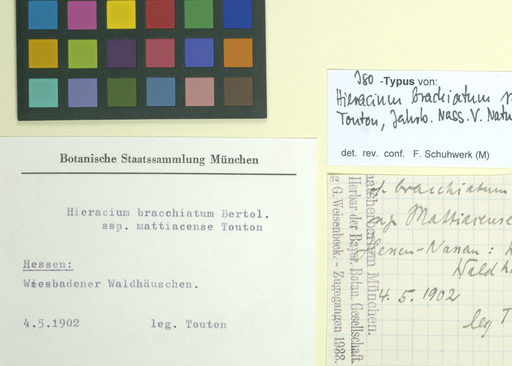 Botanische Staatssammlung München
Hieracium bracchiatum Bertol.
ssp. mattiacense Touton
Hessen:
Wiesbadener Waldhäuschen.
4.5.1902 leg. Touton
Iso-Typus von:
Hieracium brachiatum
Touton, Jahrb. Nass. V. Natu
det. rev. conf. F. Schuhwerk (M)
bracchiatum
Mattiacense
Hessen-Nassau:
Waldh
4. 5. 1902
leg T
herbarium München.
Herbar der Bayer. Botan. Gesellschaft
g G. Weisenbeck. - Zugegangen 1983.